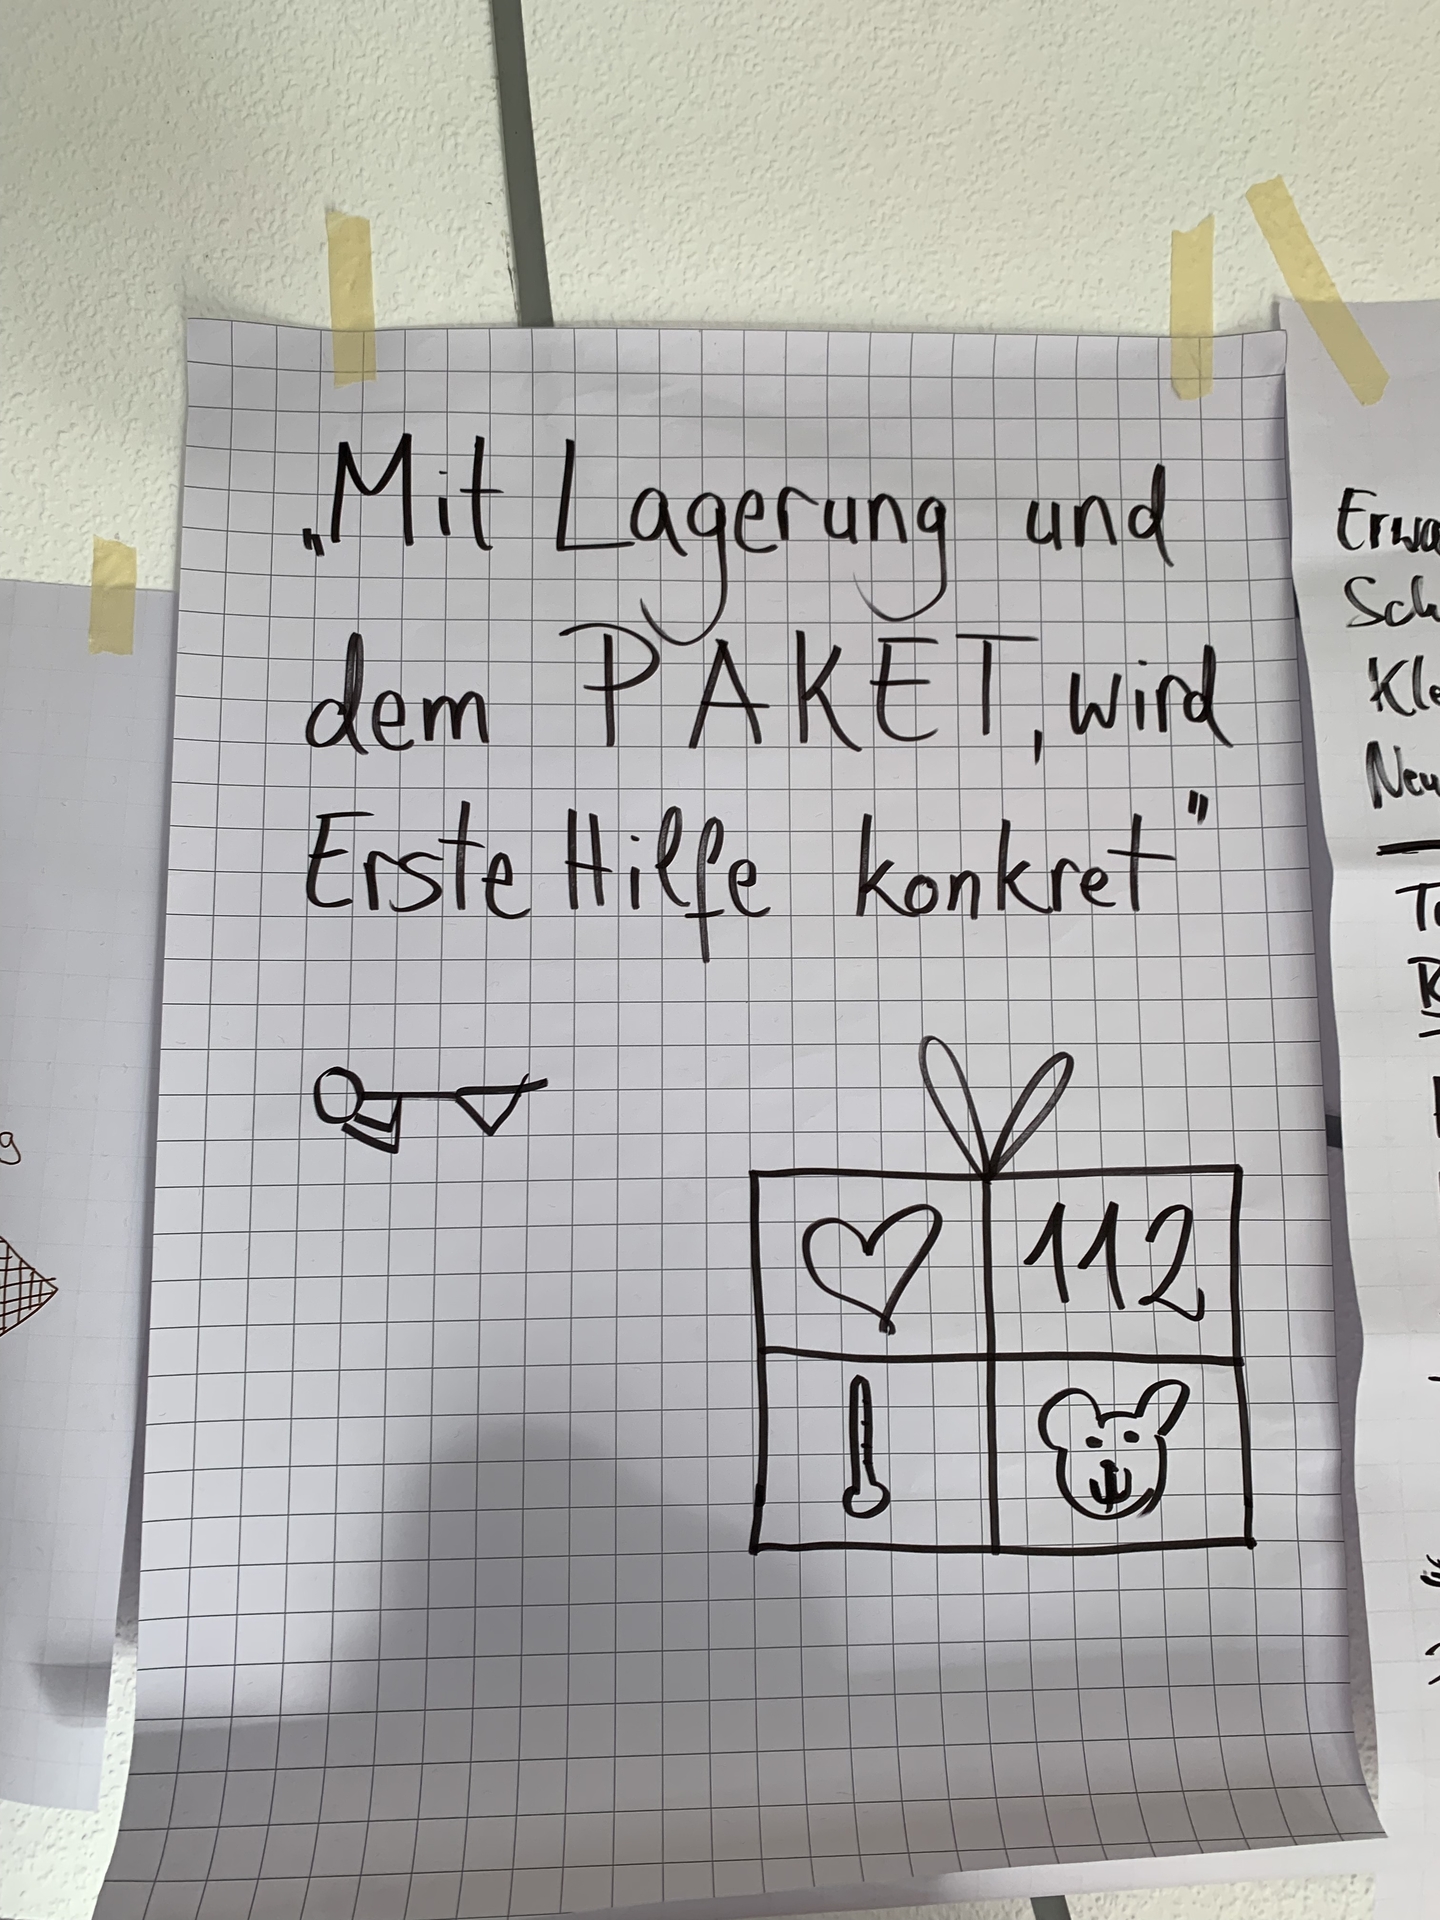 „Mit Lagerung und
dem PAKET, wird
Erste Hilfe konkret"
112
g
Erwa
Sch
Kle
Neu